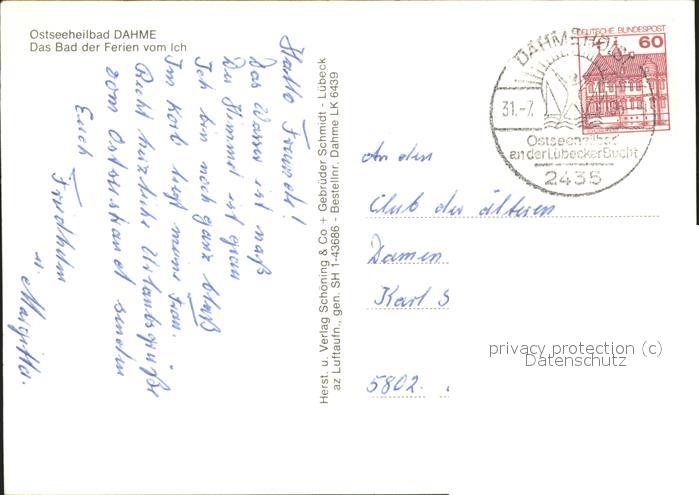 Ostseeheilbad DAHME
Das Bad der Ferien vom Ich
Hallo Freunde!
Das Wasser ist naß
Der Himmel ist grau
Ich bin noch ganz blaß
Im Korb liegt meine Frau.
Recht herzliche Urlaubsgrüße
vom Ostseestrand senden
Euch
Friedhelm
u. Margitta.
Herst. u. Verlag Schöning & Co + Gebrüder Schmidt - Lübeck
az Luftaufn., gen. SH 1-43686 - Bestellnr. Dahme LK 6439
DEUTSCHE BUNDESPOST
60
DAHME HOLST
31.-7.
Ostseeheilbad
an der Lübecker Bucht
2435
An den
Club der älteren
Damen
Karl S
5802.
privacy protection (c)
Datenschutz